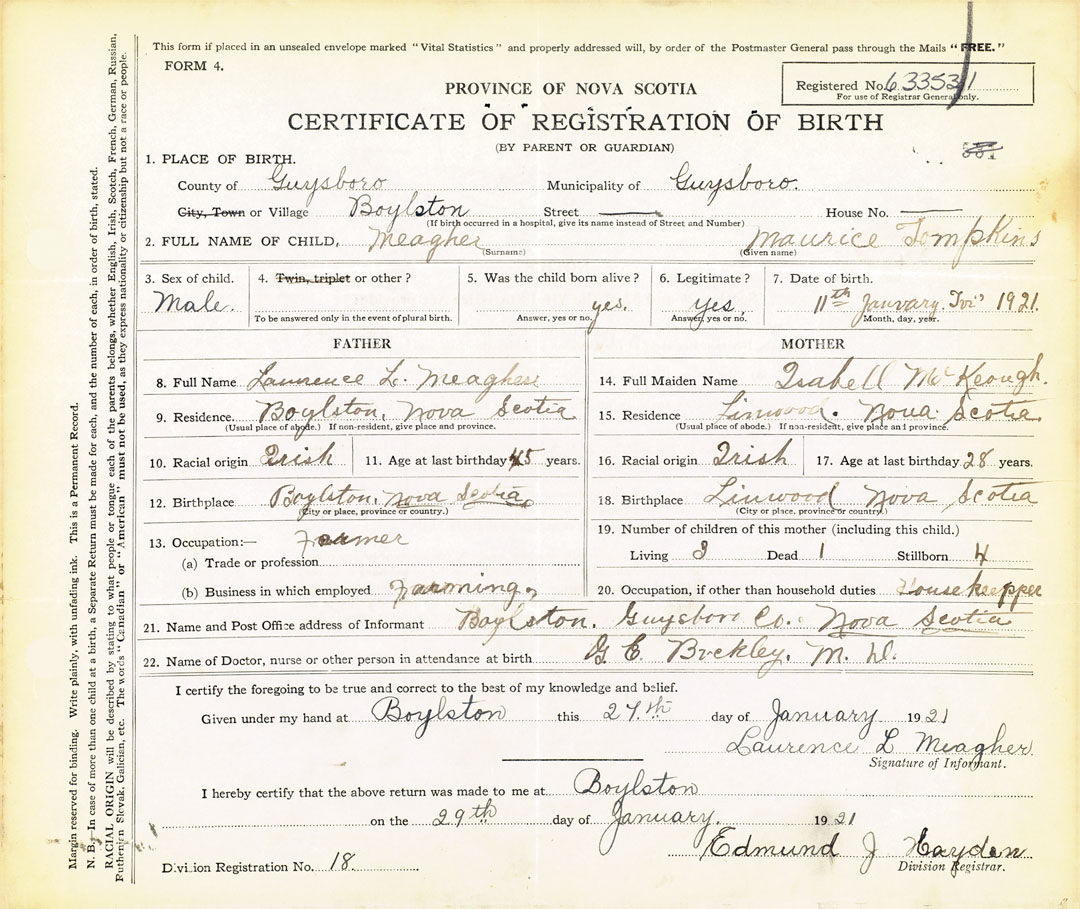 This form if placed in an unsealed envelope marked "Vital Statistics" and properly addressed will, by order of the Postmaster General pass through the Mails "FREE."
FORM 4.
Registered No. 63353
For use of Registrar General only.
PROVINCE OF NOVA SCOTIA
CERTIFICATE OF REGISTRATION OF BIRTH
(BY PARENT OR GUARDIAN)
1. PLACE OF BIRTH.
County of Guysboro Municipality of Guysboro.
City, Town or Village Boylston Street — House No. —
(If birth occurred in a hospital, give its name instead of Street and Number)
2. FULL NAME OF CHILD, Meagher Maurice Tompkins
(Surname) (Given name)
3. Sex of child. 4. Twin, triplet or other? 5. Was the child born alive? 6. Legitimate? 7. Date of birth.
Male. yes. yes. 11th January. 1921.
To be answered only in the event of plural birth. Answer, yes or no. Answer, yes or no. Month, day, year.
FATHER
8. Full Name Laurence L. Meagher
9. Residence. Boylston, Nova Scotia
(Usual place of abode.) If non-resident, give place and province.
10. Racial origin Irish 11. Age at last birthday 45 years.
12. Birthplace Boylston, Nova Scotia
(City or place, province or country.)
13. Occupation:— Farmer
(a) Trade or profession
(b) Business in which employed Farming
MOTHER
14. Full Maiden Name Isabell McKeough.
15. Residence Linwood. Nova Scotia
(Usual place of abode.) If non-resident, give place and province.
16. Racial origin Irish 17. Age at last birthday 28 years.
18. Birthplace Linwood Nova Scotia
(City or place, province or country)
19. Number of children of this mother (including this child.)
Living 3 Dead 1 Stillborn 4
20. Occupation, if other than household duties Housekeepper
21. Name and Post Office address of Informant Boylston. Guysboro Co. Nova Scotia
22. Name of Doctor, nurse or other person in attendance at birth G E. Buckley. M. D.
I certify the foregoing to be true and correct to the best of my knowledge and belief.
Given under my hand at Boylston this 27.th day of January 1921
Laurence L Meagher
Signature of Informant.
I hereby certify that the above return was made to me at Boylston
on the 29th day of January. 1921
Edmund J Hayden
Division Registrar.
Division Registration No. 18.
Margin reserved for binding. Write plainly, with unfading ink. This is a Permanent Record.
N. B.—In case of more than one child at a birth, a Separate Return must be made for each, and the number of each, in order of birth, stated.
RACIAL ORIGIN will be described by stating to what people or tongue each of the parents belongs, whether English, Irish, Scotch, French, German, Russian,
Ruthenian Slovak, Galician, etc. The words "Canadian" or "American" must not be used, as they express nationality or citizenship but not a race or people.